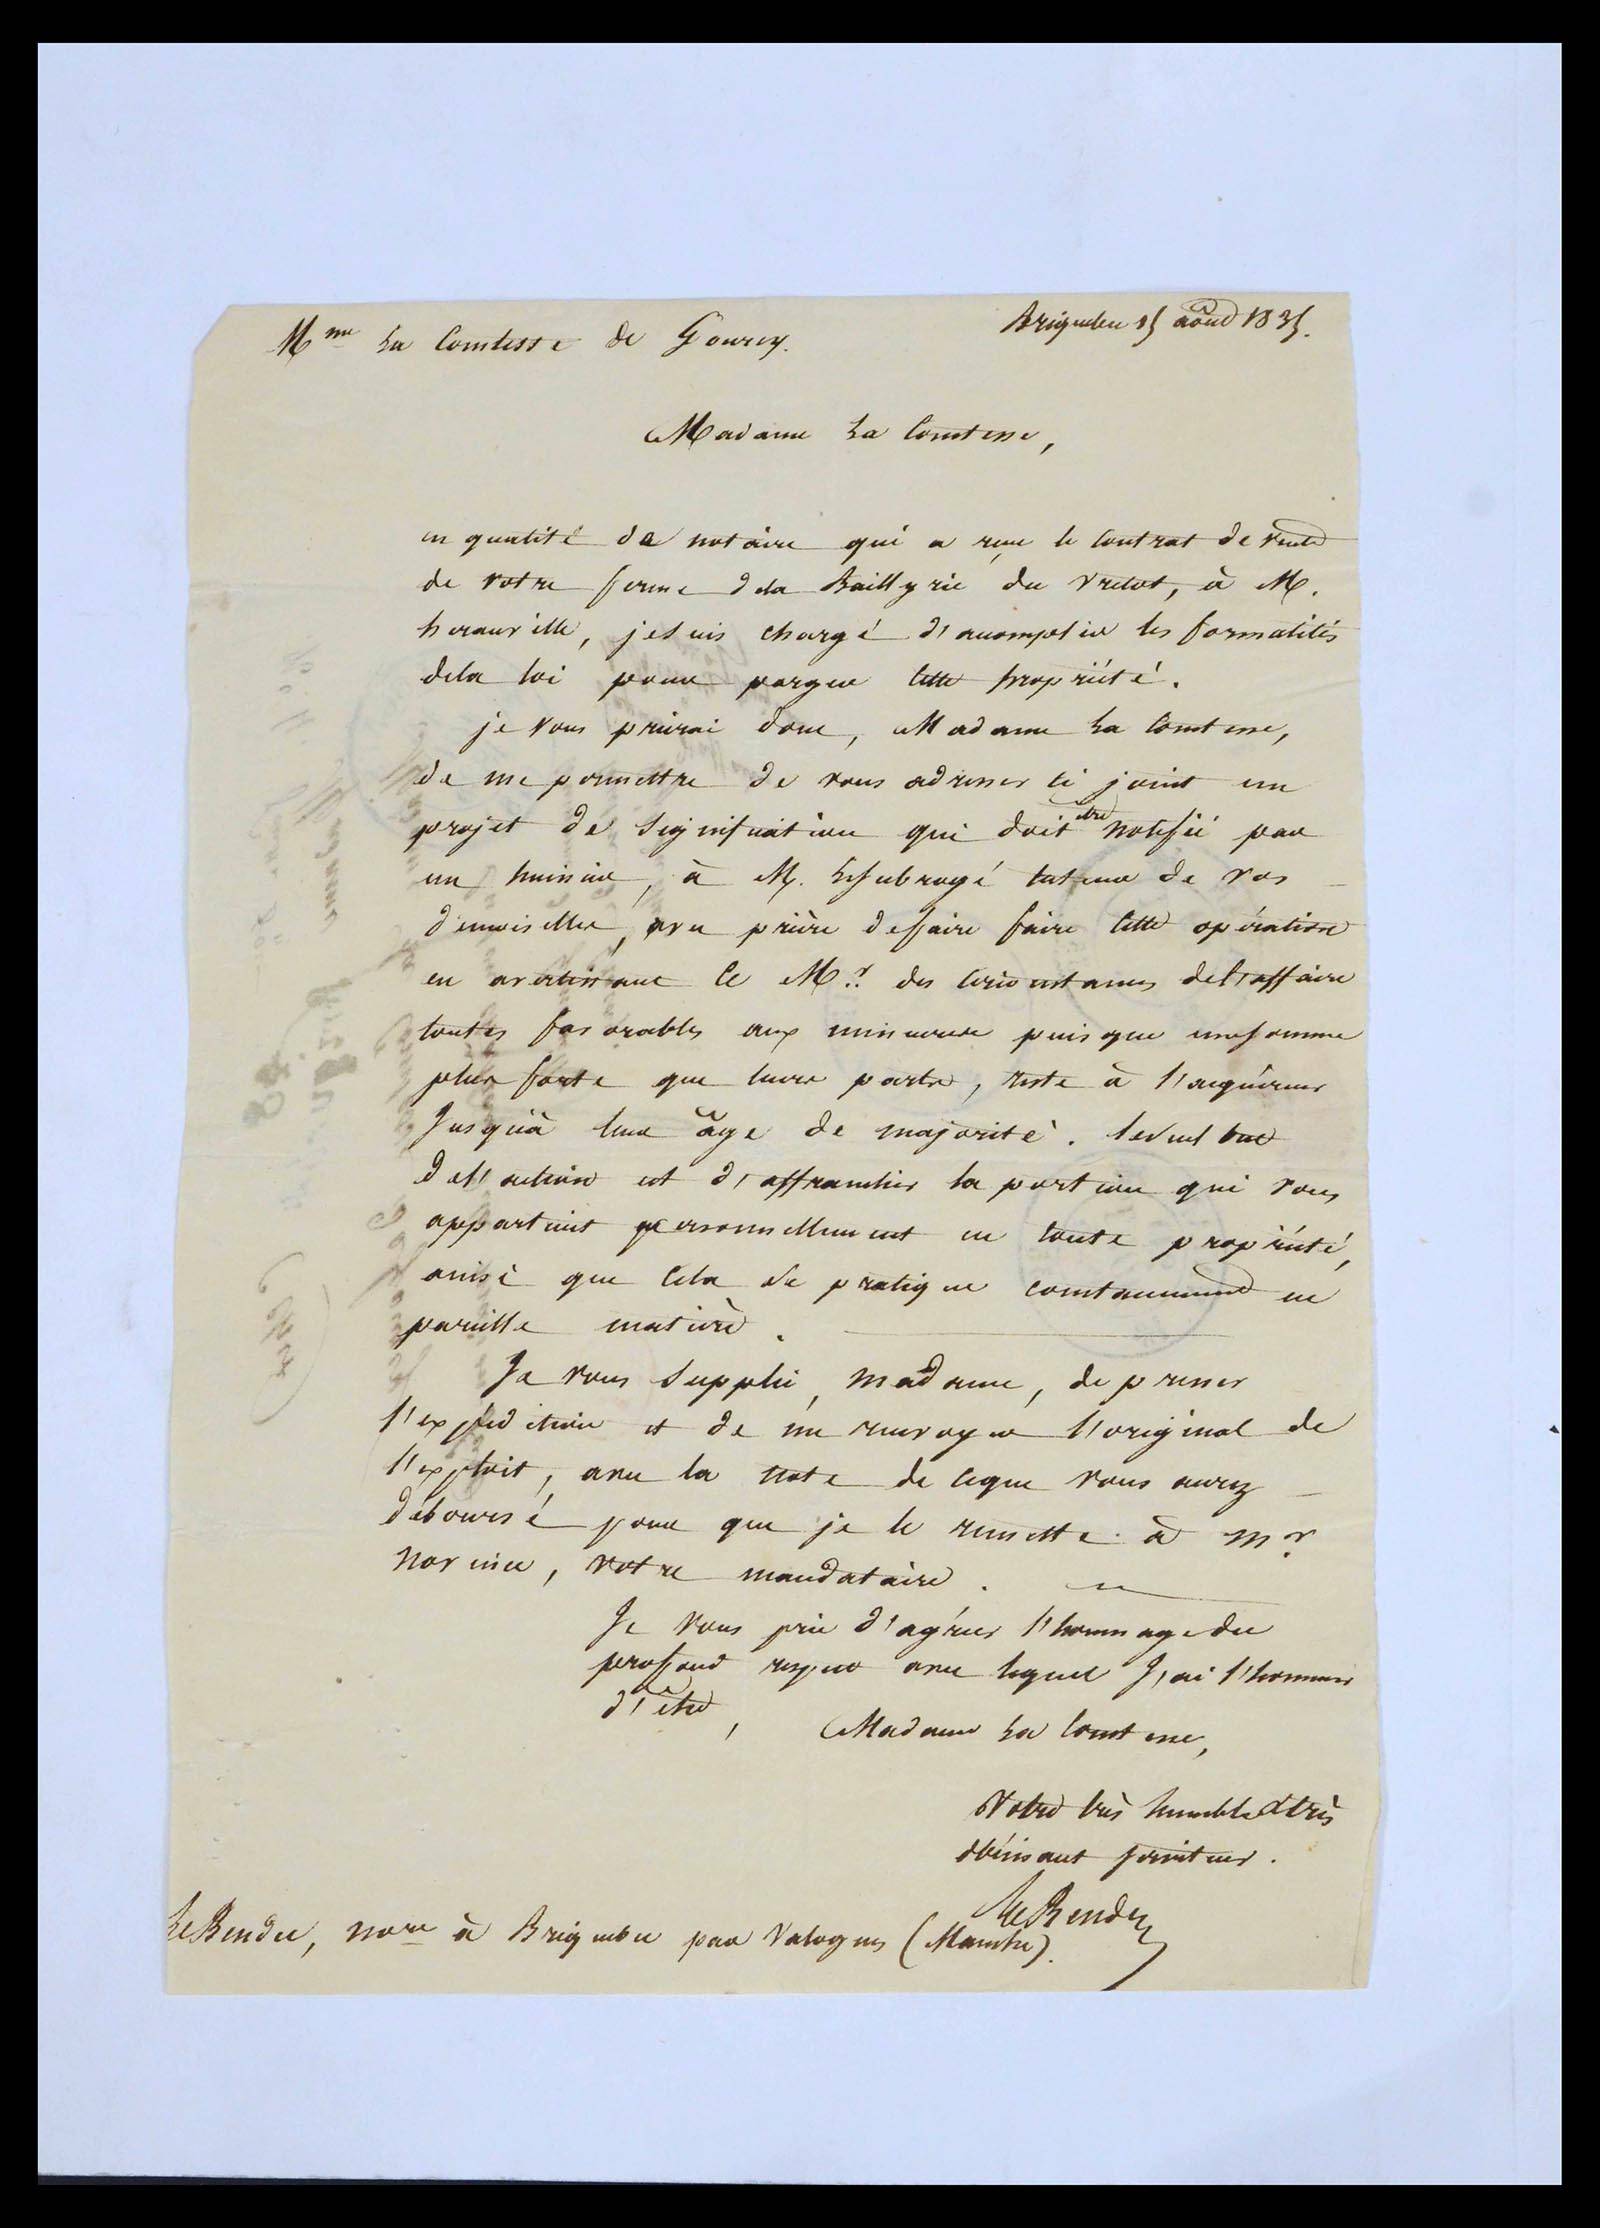 Mme La Comtesse de Gourcy.
Briquebec 15 août 1835.
Madame La Comtesse,
en qualité de notaire qui a reçu le contrat de vente
de votre ferme dela Baillyrie du Vretot, à M.
herauville, je suis chargé d'accomplir les formalités
dela loi pour purger cette propriété.
je vous prierai donc, Madame La Comtesse,
de me permettre de vous adresser ci joint un
projet de signification qui doit être notifié par
un huissier, à M. Le subrogé tuteur de vos
demoiselles, avec prière defaire faire cette opération
en avertissant ce Mr. des circonstances del'affaire
toutes favorables aux mineures puisque une somme
plus forte que leurs parts, reste à l'acquéreur
Jusqu'à leur âge de majorité. le seul but
del'action est d'affranchir la portion qui vous
appartient personnellement en toute propriété,
ainsi que cela se pratique constamment en
pareille matière.
Je vous supplie, madame, de presser
l'expédition et de me renvoyer l'original de
l'exploit, avec la note de ceque vous aurez
déboursé pour que je le remette à mr
, votre mandataire.
Je vous prie d'agréer l'hommage du
profond respect avec lequel J'ai l'honneur
d'être,
Madame La Comtesse,
Votre très humble et très
obéissant serviteur.
LeBendey
LeBendey, nore à Briquebec par Valognes (Manche).